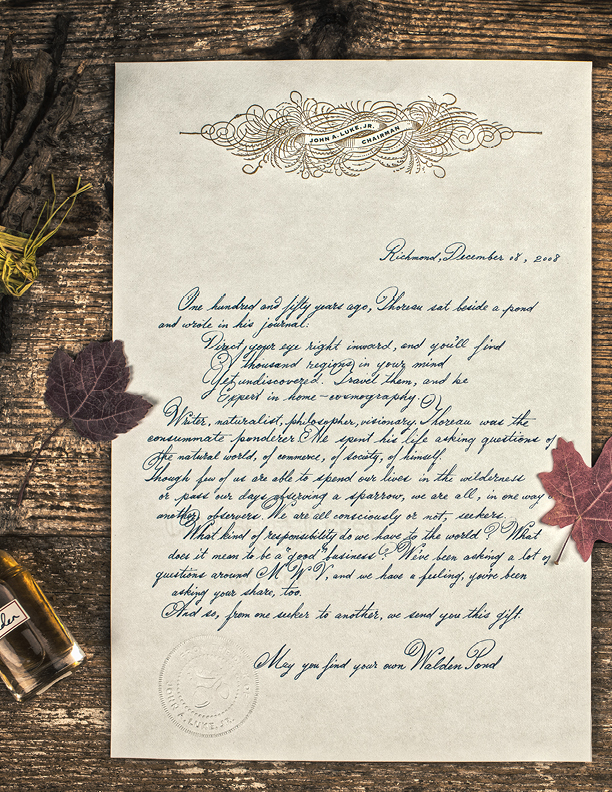 JOHN A. LUKE, JR.
CHAIRMAN
Richmond, December 08, 2008
One hundred and fifty years ago, Thoreau sat beside a pond
and wrote in his journal:
Direct your eye right inward, and you'll find
A thousand regions in your mind
Yet undiscovered. Travel them, and be
Expert in home-cosmography.
Writer, naturalist, philosopher, visionary. Thoreau was the
consummate ponderer. He spent his life asking questions of
the natural world, of commerce, of society, of himself.
Though few of us are able to spend our lives in the wilderness
or pass our days observing a sparrow, we are all, in one way
another, observers. We are all consciously or not, seekers.
What kind of responsibility do we have to the world? What
does it mean to be a "good" business? We've been asking a lot of
questions around MWV, and we have a feeling, you've been
asking your share, too.
And so, from one seeker to another, we send you this gift.
May you find your own Walden Pond
JOHN A. LUKE, JR.